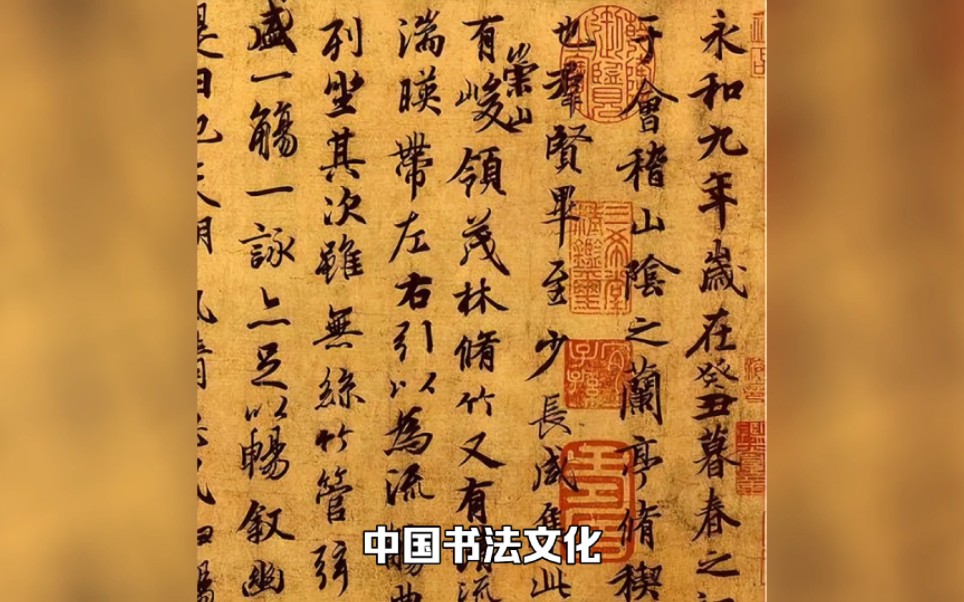 永和九年歲在癸丑暮春之
于會稽山陰之蘭亭脩稧
也羣賢畢至少長咸集此
有崇山峻領茂林脩竹又有清流
湍暎帶左右引以為流觴曲
列坐其次雖無絲竹管弦
盛一觴一詠亦足以暢叙幽
是日也天朗
中国书法文化